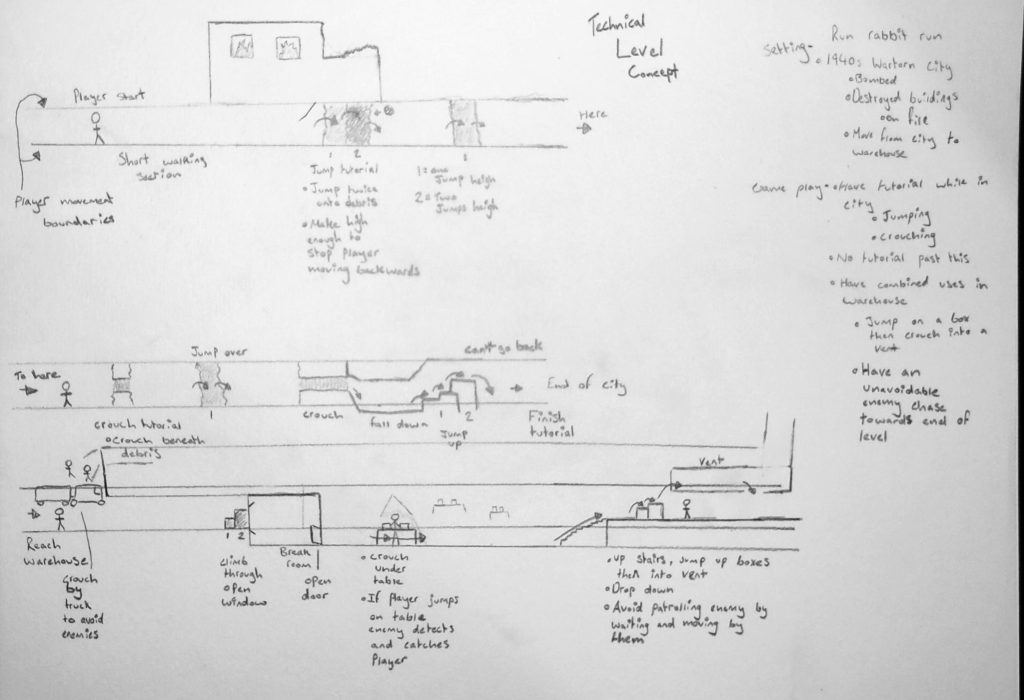 Technical
Level
Concept
Run rabbit run
Setting- • 1940s Wartorn City
• Bombed
• Destroyed buildings
• on fire
• Move from city to
warehouse
Game play- • Have tutorial while in
city
• Jumping
• crouching
• No tutorial past this
• Have combined uses in
warehouse
• Jump on a box
then crouch into a
vent
• Have an
unavoidable
enemy chase
towards end of
level
Player start
Here
Short walking
section
Player movement
boundaries
1 2
Jump tutorial
• Jump twice
onto debris
• Make high
enough to
stop player
moving backwards
1
1 = one
Jump heigh
2 = Two
Jumps heigh
Jump over
can't go back
To here
End of city
1
crouch
fall down
1 2
Jump
up
Finish
tutorial
crouch tutorial
• Crouch beneath
debris
vent
Reach
warehouse
Crouch
by
truck
to avoid
enemies
1 2
climb
through
open
window
Break
room
open
door
• crouch
under
table
• If player jumps
on table
enemy detects
and catches
Player
• up stairs, jump up boxes
then into vent
• Drop down
• Avoid patrolling enemy by
waiting and moving by
them